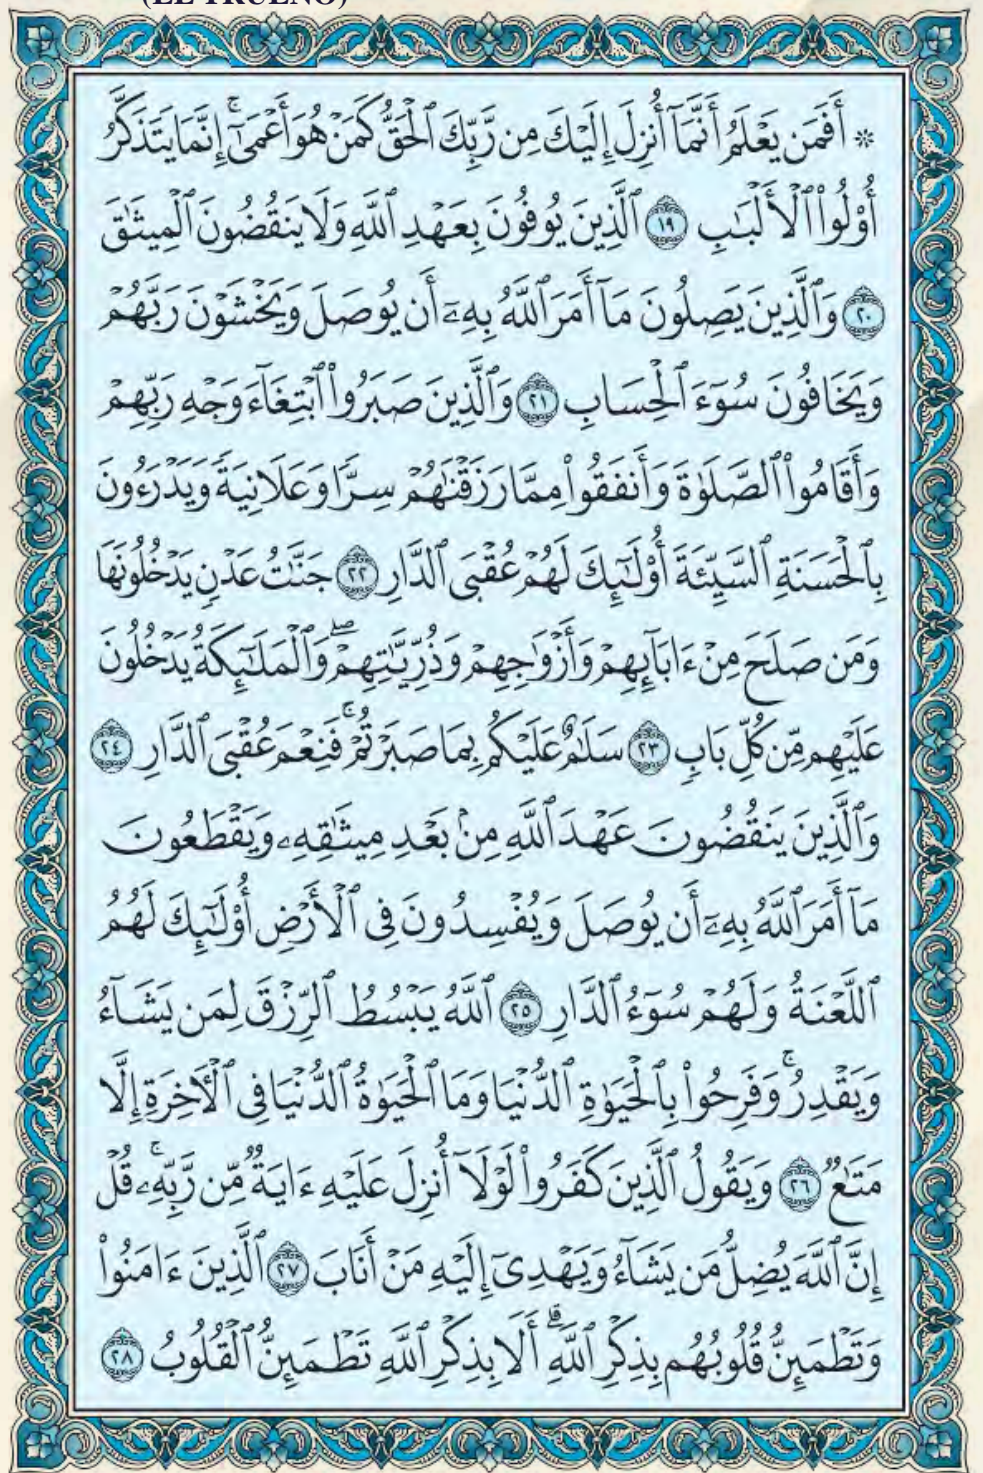 (EL TRUENO)
۞ أَفَمَن يَعْلَمُ أَنَّمَآ أُنزِلَ إِلَيْكَ مِن رَّبِّكَ ٱلْحَقُّ كَمَنْ هُوَ أَعْمَىٰٓۚ إِنَّمَا يَتَذَكَّرُ
أُوْلُواْ ٱلْأَلْبَٰبِ ١٩ ٱلَّذِينَ يُوفُونَ بِعَهْدِ ٱللَّهِ وَلَا يَنقُضُونَ ٱلْمِيثَٰقَ
٢٠ وَٱلَّذِينَ يَصِلُونَ مَآ أَمَرَ ٱللَّهُ بِهِۦٓ أَن يُوصَلَ وَيَخْشَوْنَ رَبَّهُمْ
وَيَخَافُونَ سُوٓءَ ٱلْحِسَابِ ٢١ وَٱلَّذِينَ صَبَرُواْ ٱبْتِغَآءَ وَجْهِ رَبِّهِمْ
وَأَقَامُواْ ٱلصَّلَوٰةَ وَأَنفَقُواْ مِمَّا رَزَقْنَٰهُمْ سِرًّا وَعَلَانِيَةً وَيَدْرَءُونَ
بِٱلْحَسَنَةِ ٱلسَّيِّئَةَ أُوْلَٰٓئِكَ لَهُمْ عُقْبَى ٱلدَّارِ ٢٢ جَنَّٰتُ عَدْنٍ يَدْخُلُونَهَا
وَمَن صَلَحَ مِنْ ءَابَآئِهِمْ وَأَزْوَٰجِهِمْ وَذُرِّيَّٰتِهِمْۖ وَٱلْمَلَٰٓئِكَةُ يَدْخُلُونَ
عَلَيْهِم مِّن كُلِّ بَابٍ ٢٣ سَلَٰمٌ عَلَيْكُم بِمَا صَبَرْتُمْۚ فَنِعْمَ عُقْبَى ٱلدَّارِ ٢٤
وَٱلَّذِينَ يَنقُضُونَ عَهْدَ ٱللَّهِ مِنۢ بَعْدِ مِيثَٰقِهِۦ وَيَقْطَعُونَ
مَآ أَمَرَ ٱللَّهُ بِهِۦٓ أَن يُوصَلَ وَيُفْسِدُونَ فِى ٱلْأَرْضِ أُوْلَٰٓئِكَ لَهُمُ
ٱللَّعْنَةُ وَلَهُمْ سُوٓءُ ٱلدَّارِ ٢٥ ٱللَّهُ يَبْسُطُ ٱلرِّزْقَ لِمَن يَشَآءُ
وَيَقْدِرُۚ وَفَرِحُواْ بِٱلْحَيَوٰةِ ٱلدُّنْيَا وَمَا ٱلْحَيَوٰةُ ٱلدُّنْيَا فِى ٱلْأٓخِرَةِ إِلَّا
مَتَٰعٌ ٢٦ وَيَقُولُ ٱلَّذِينَ كَفَرُواْ لَوْلَآ أُنزِلَ عَلَيْهِ ءَايَةٌ مِّن رَّبِّهِۦۚ قُلْ
إِنَّ ٱللَّهَ يُضِلُّ مَن يَشَآءُ وَيَهْدِىٓ إِلَيْهِ مَنْ أَنَابَ ٢٧ ٱلَّذِينَ ءَامَنُواْ
وَتَطْمَئِنُّ قُلُوبُهُم بِذِكْرِ ٱللَّهِۗ أَلَا بِذِكْرِ ٱللَّهِ تَطْمَئِنُّ ٱلْقُلُوبُ ٢٨